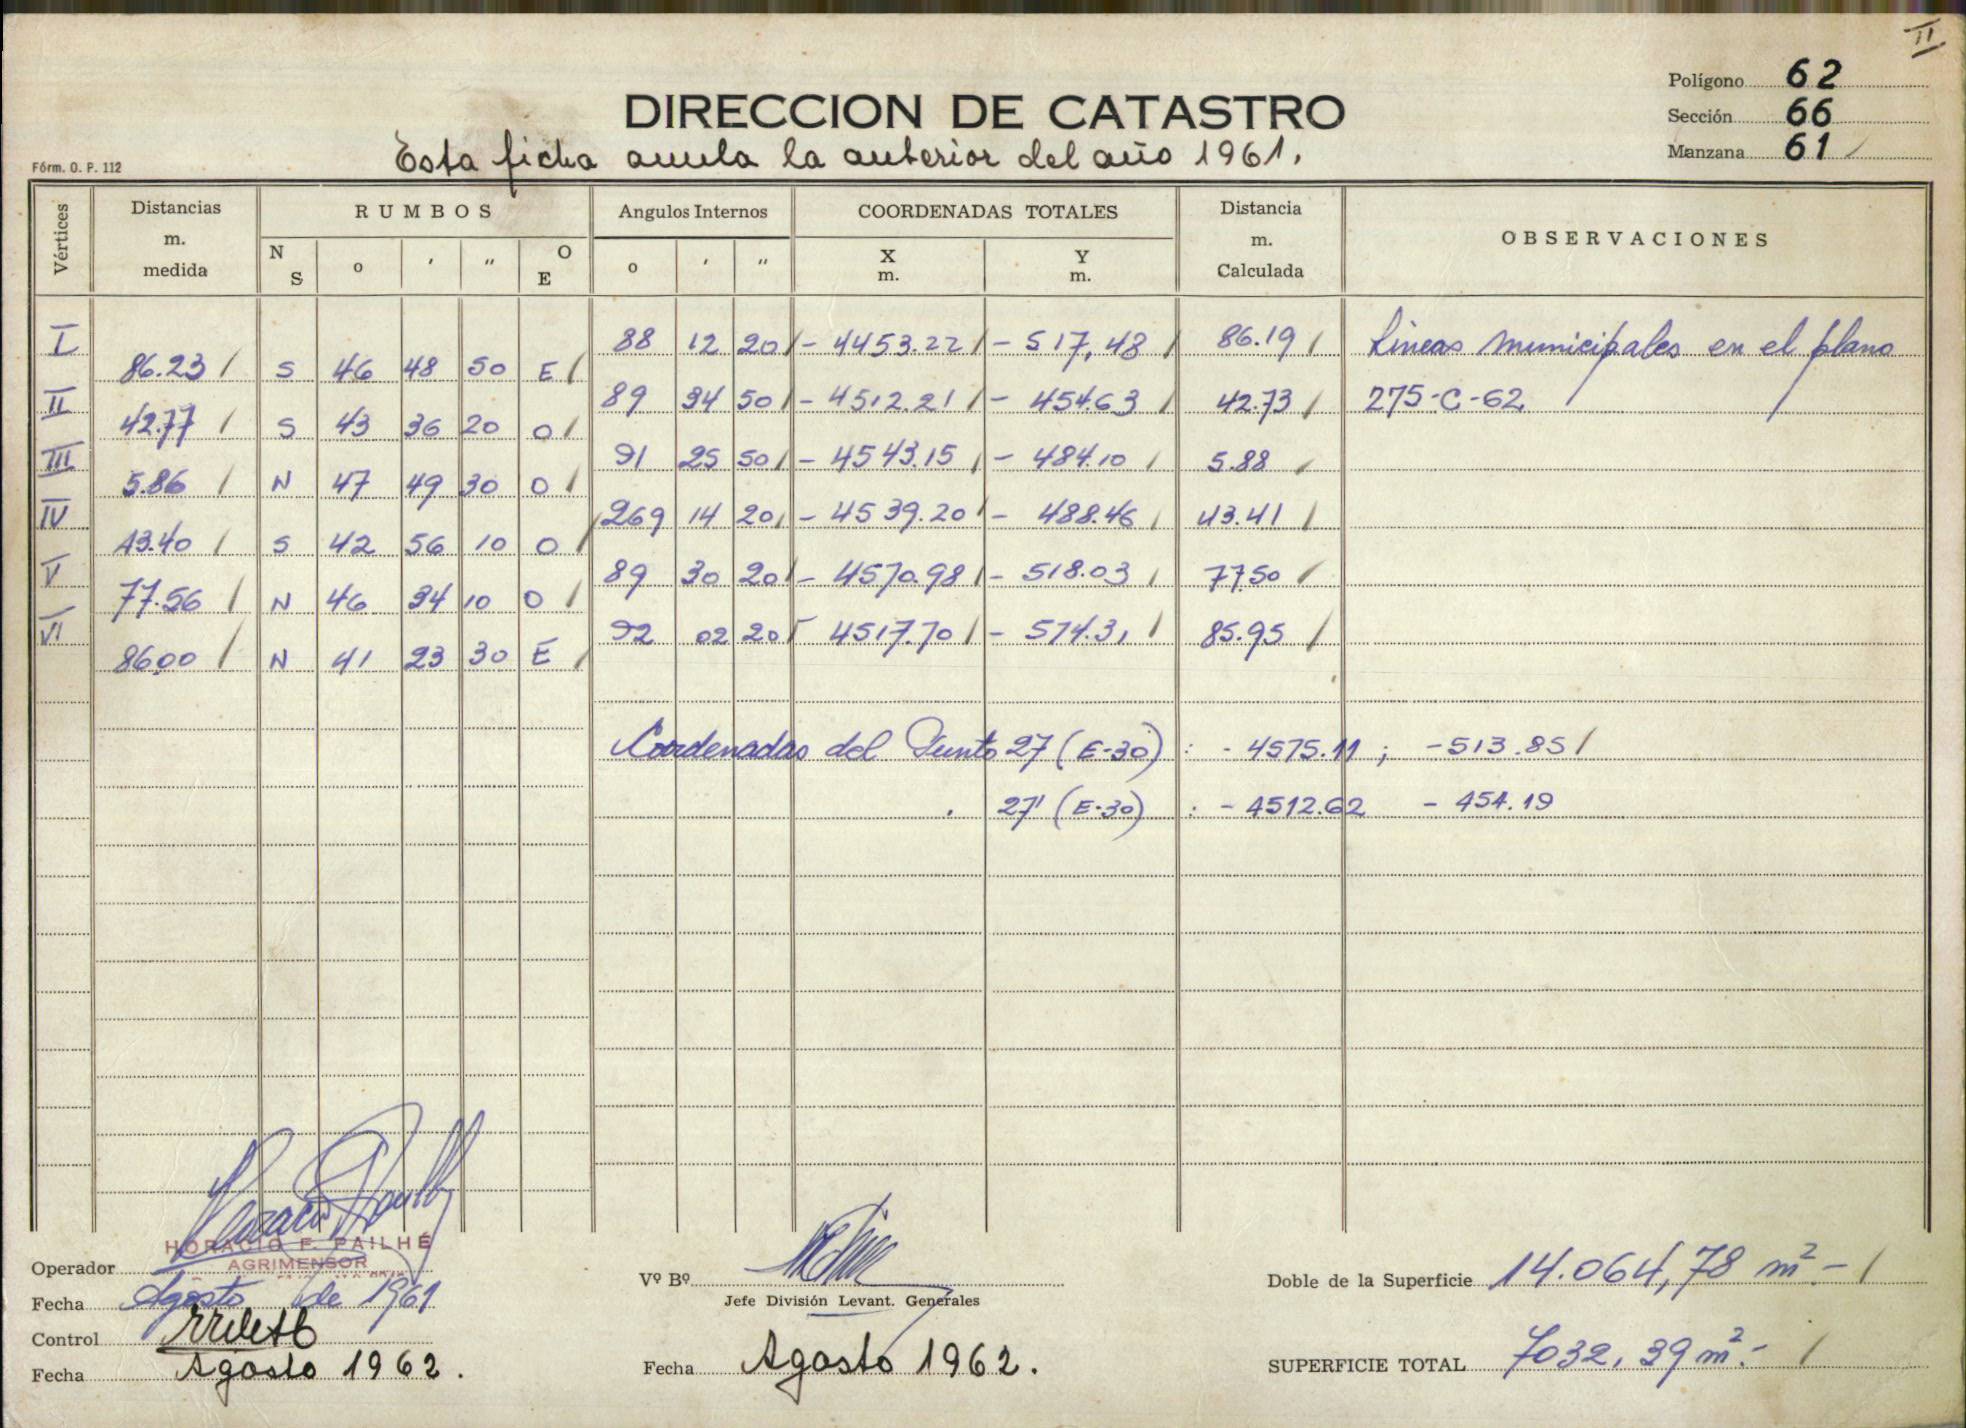 II
Polígono 62
DIRECCION DE CATASTRO
Sección 66
Esta ficha anula la anterior del año 1961.
Manzana 61
Fórm. O. P. 112
Vértices Distancias m. medida RUMBOS Angulos Internos COORDENADAS TOTALES Distancia m. Calculada OBSERVACIONES
N S o ' " O E o ' " X m. Y m.
I 88 12 20 - 4453.22 - 517,48 86.19 Lineas municipales en el plano
86.23 S 46 48 50 E
II 89 34 50 - 4512.21 - 454.63 42.73 275-C-62
42.77 S 43 36 20 O
III 91 25 50 - 4543.15 - 484.10 5.88
5.86 N 47 49 30 O
IV 269 14 20 - 4539.20 - 488.46 43.41
43.40 S 42 56 10 O
V 89 30 20 - 4570.98 - 518.03 77.50
77.56 N 46 34 10 O
VI 92 02 20 - 4517.70 - 574.31 85.95
86.00 N 41 23 30 E
Coordenadas del Punto 27 (E-30) : - 4575.11 ; -513.85
27' (E-30) : - 4512.62 - 454.19
HORACIO F. PAILHÉ
AGRIMENSOR
Operador
Fecha Agosto de 1961
Control
Fecha Agosto 1962.
Vº Bº
Jefe División Levant. Generales
Fecha Agosto 1962.
Doble de la Superficie 14.064,78 m².-
SUPERFICIE TOTAL 7032,39 m².-